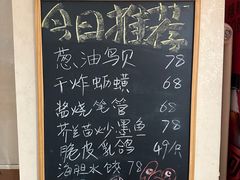 今日推荐
葱油鸟贝 78
干炸蛎蟥 68
酱烧笔管 68
芥兰苗炒墨鱼 78
脆皮乳鸽 49/只
海胆水饺 78